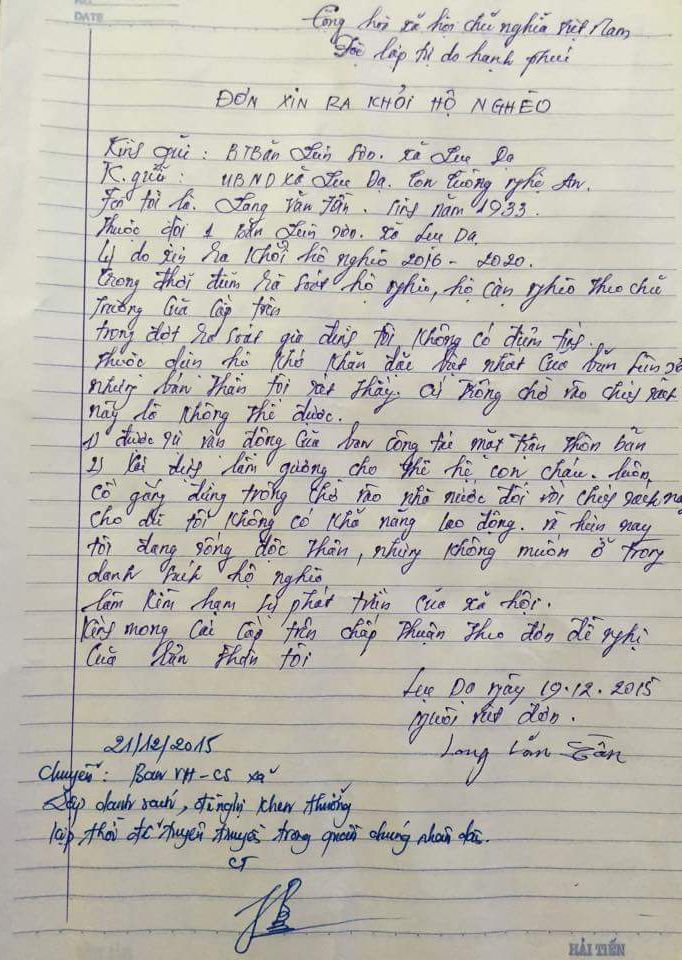 DATE
Cộng hoà xã hội chủ nghĩa Việt Nam
Độc lập tự do hạnh phúc
ĐƠN XIN RA KHỎI HỘ NGHÈO
Kính gửi : BTBản xã Lục Dạ
K. gửi : UBND xã Lục Dạ. Con Cuông nghệ An.
Tên tôi là. Lang Văn Tần. Sinh năm 1933.
Thuộc đội 1 bản xã Lục Dạ
Lý do xin ra khỏi hộ nghèo 2016 - 2020.
Trong thời điểm rà soát hộ nghèo, hộ cận nghèo theo chủ
trương của cấp trên
trong đợt rà soát gia đình tôi không có điểm
Thuộc diện hộ khó khăn đặc biệt nhất của bản
nhưng bản thân tôi xét thấy. cứ trông chờ vào chính sách
này là không thể được.
1) được sự vận động của ban công tác mặt trận thôn bản
2) lấy làm gương cho thế hệ con cháu. luôn
cố gắng đừng trông chờ vào nhà nước đối với chính sách
cho dù tôi không có khả năng lao động. và hiện nay
tôi đang sống độc thân, nhưng không muốn ở trong
danh sách hộ nghèo
làm kìm hạm sự phát triển của xã hội.
Kính mong các cấp trên chấp thuận theo đơn đề nghị
của bản thân tôi
Lục Dạ ngày 19.12.2015
người viết đơn.
Lang Văn Tần
21/12/2015
Chuyển : Ban VH-CS xã
Lập danh sách, đề nghị khen thưởng
kịp thời để tuyên truyền trong quần chúng nhân dân.
CT
HẢI TIẾN